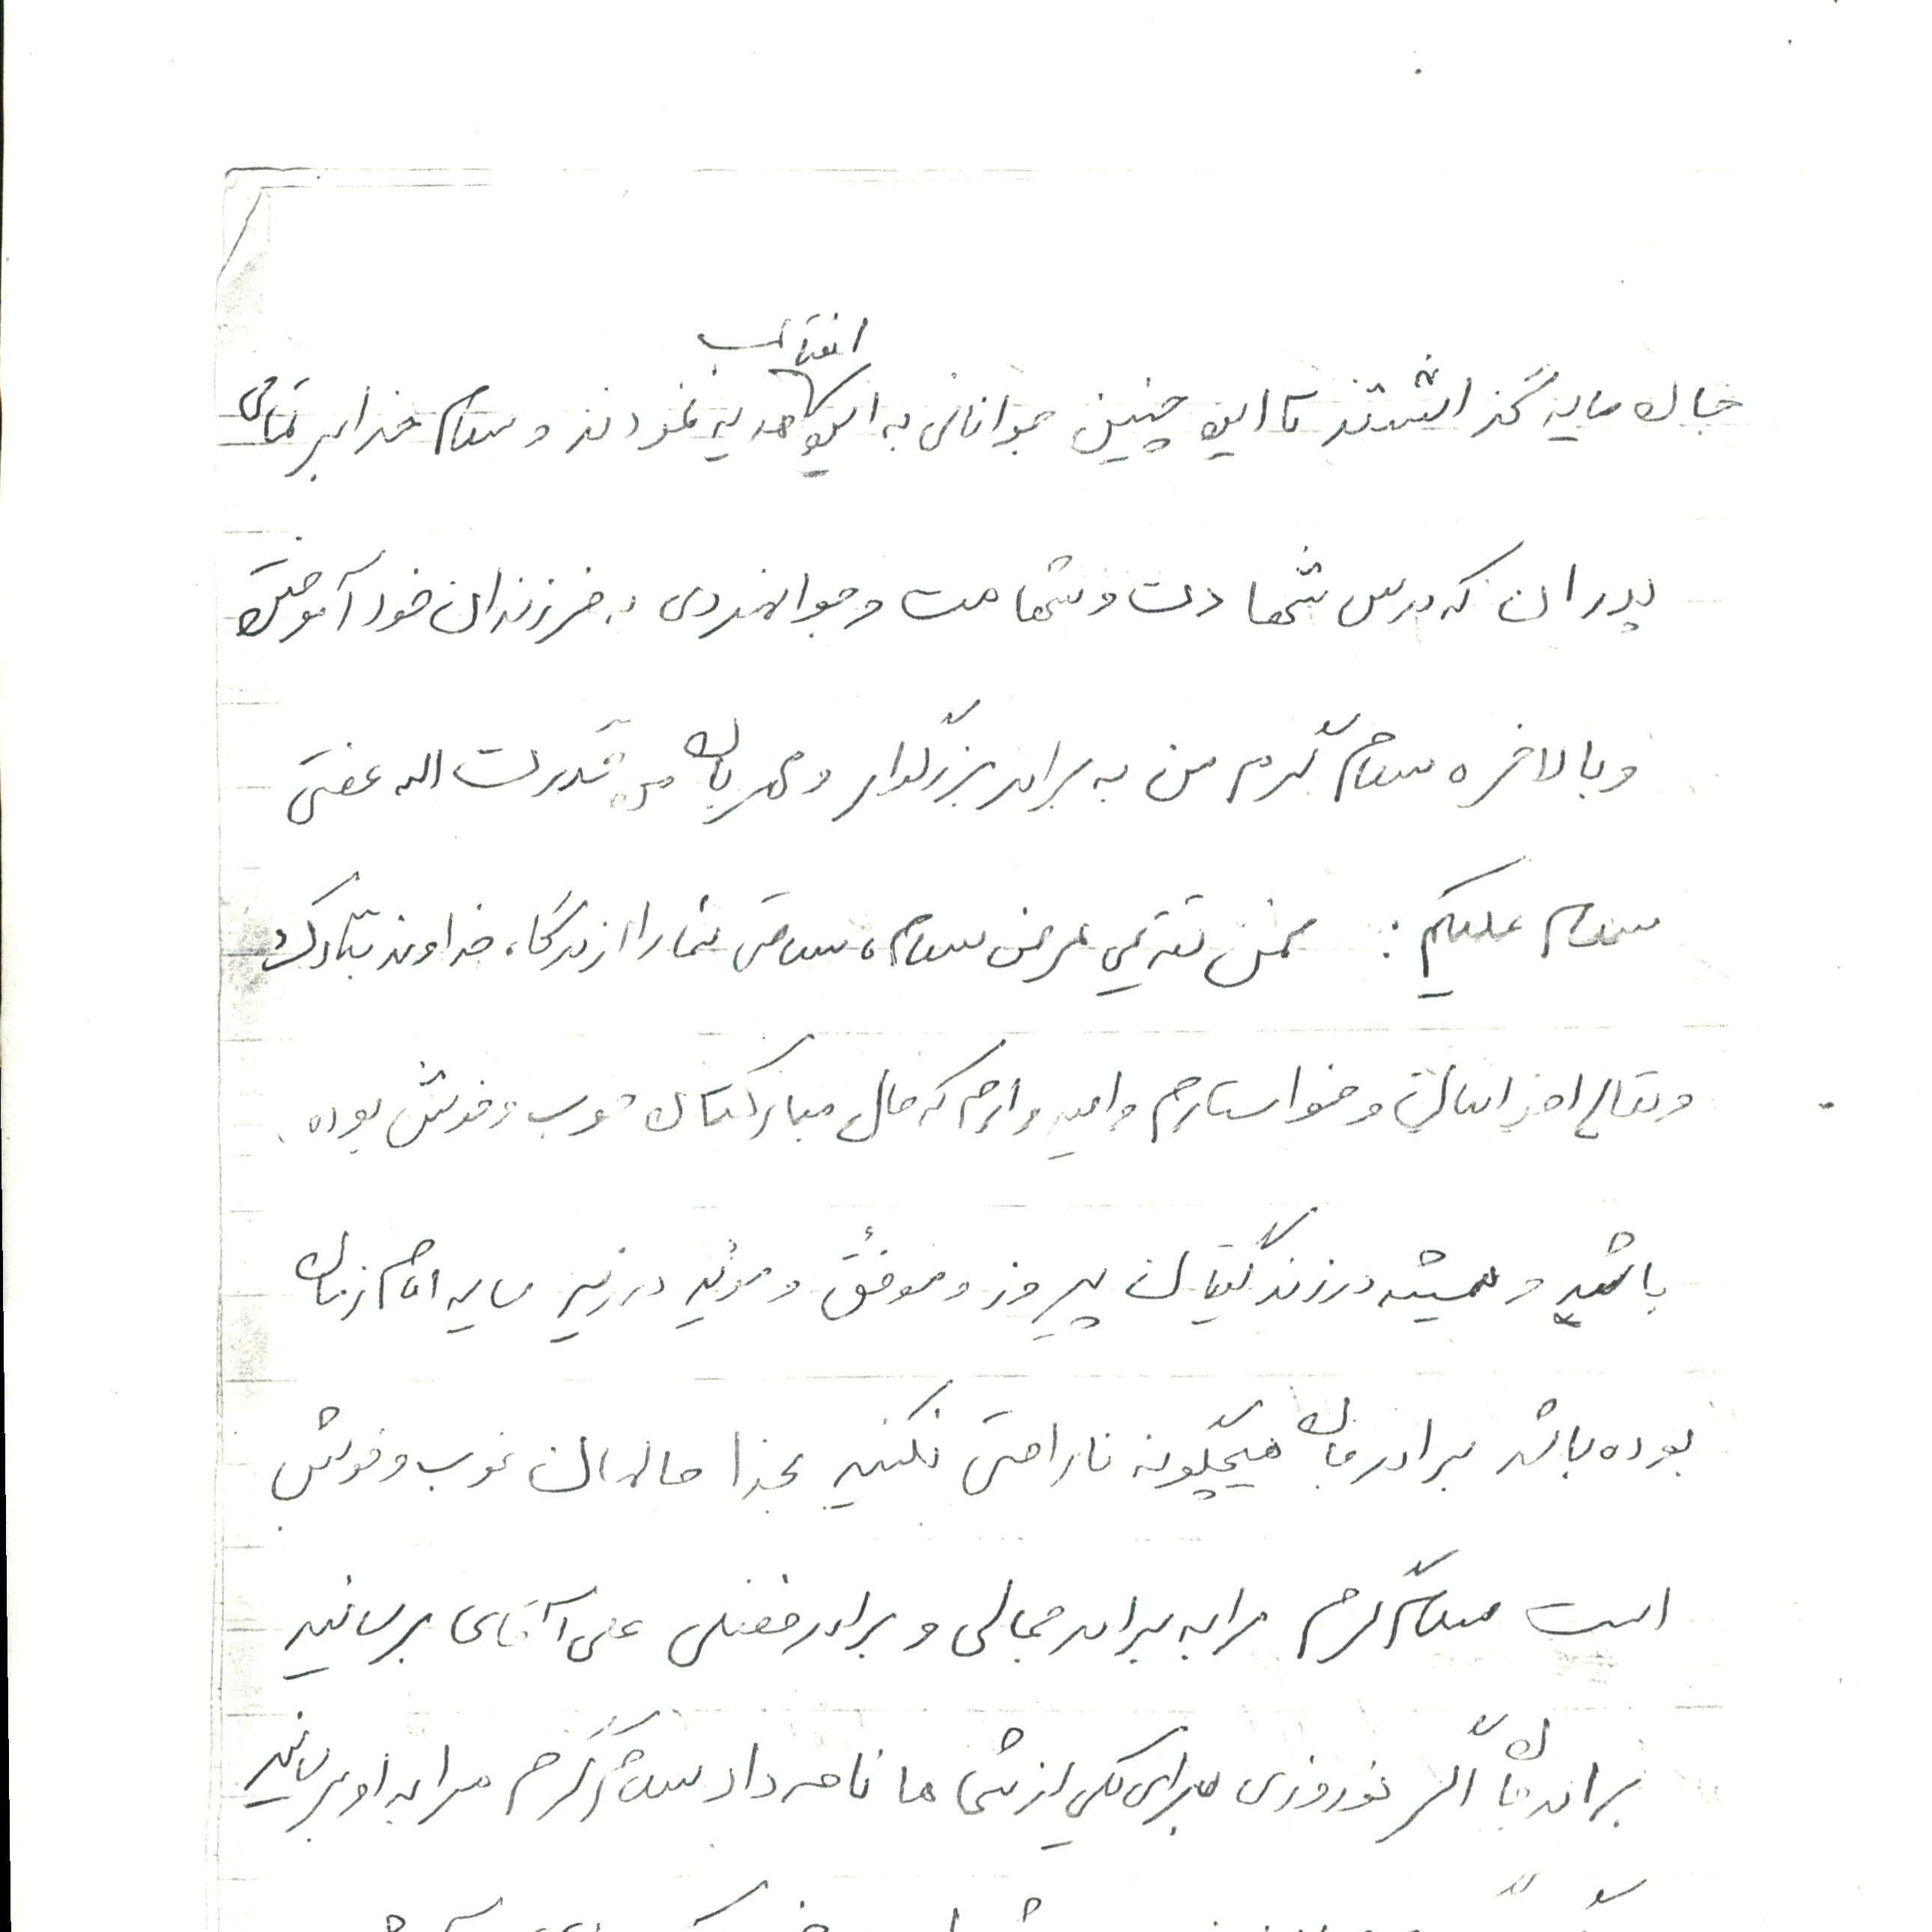 جان مایه گذاشتند تا این چنین جوانانی به این انقلاب هدیه نمودند و سلام خدا بر تمامی
پدران که درس شهادت و شهامت و جوانمردی به فرزندان خود آموختن
و بالاخره سلام گرم من به برادر بزرگوار و مهربان من قدرت اله عفتی
سلام علیکم : ضمن تقدیم عرض سلام، سلامتی شما را از درگاه خداوند تبارک
و تعالی و خواستارم و امیدوارم که حال مبارکتان خوب و خوش بوده
باشید و همیشه در زندگیتان پیروز و موفق و موئید در زیر سایه امام زمان
بوده باشد برادر جان هیچگونه ناراحتی نکنید بخدا حالمان خوب و خوش
است سلام گرم مرا به برادر جمالی و برادر فضلی علی آقای برسانید
برادر جان اگر نوروزی برای یکی از شماها نامه داد سلام گرم مرا به او برسانید